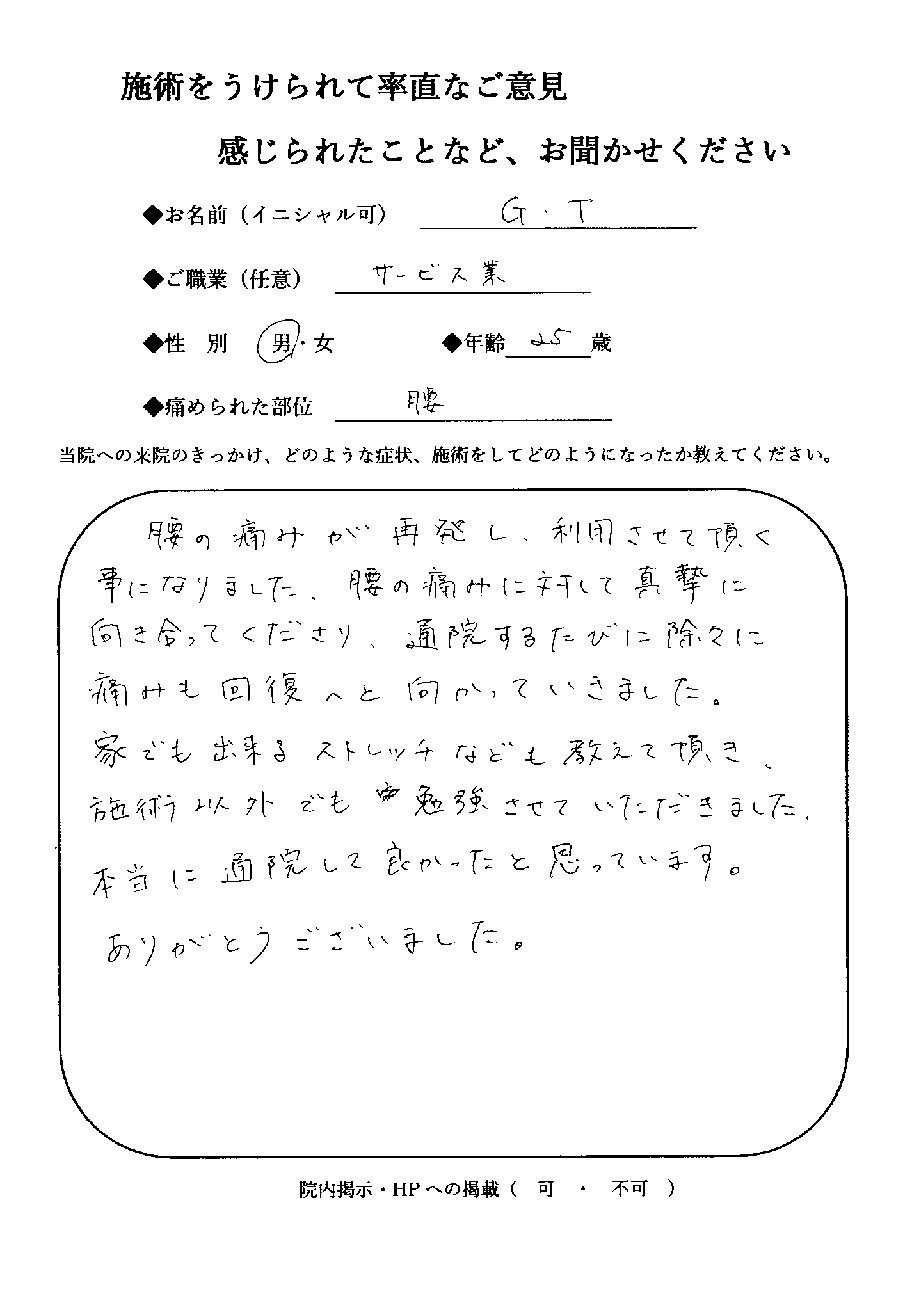 施術をうけられて率直なご意見
感じられたことなど、お聞かせください
◆お名前（イニシャル可） G・T
◆ご職業（任意） サービス業
◆性　別　男・女　◆年齢 25 歳
◆痛められた部位 腰
当院への来院のきっかけ、どのような症状、施術をしてどのようになったか教えてください。
腰の痛みが再発し、利用させて頂く
事になりました、腰の痛みに対して真摯に
向き合ってくださり、通院するたびに除々に
痛みも回復へと向かっていきました。
家でも出来るストレッチなども教えて頂き、
施術以外でも勉強させていただきました、
本当に通院して良かったと思っています。
ありがとうございました。
院内掲示・HPへの掲載（　可　・　不可　）